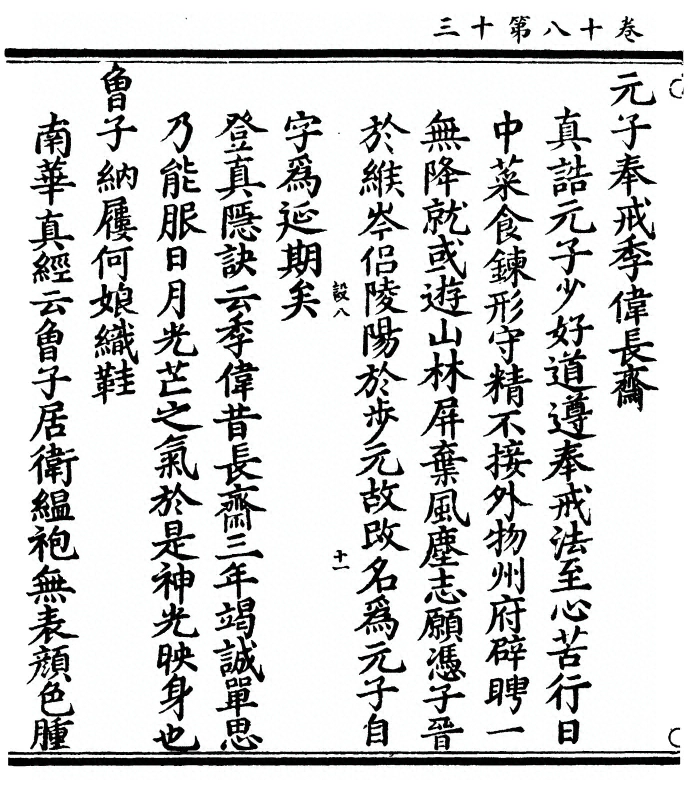 三十第八十卷
元子奉戒季偉長齋
真誥元子少好道遵奉戒法至心苦行日
中菜食鍊形守精不接外物州府辟聘一
無降就或遊山林屏棄風塵志願憑子晉
於緱岑侣陵陽於步元故改名爲元子自
設八
十一
字爲延期矣
登真隱訣云季偉昔長齋三年竭誠單思
乃能服日月光芒之氣於是神光映身也
魯子納屨何娘織鞋
南華真經云魯子居衛緼袍無表顔色腫